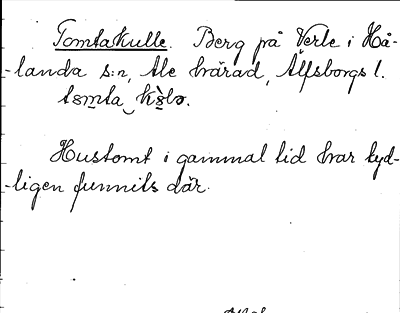 Tomtakulle. Berg på Verle i Hå-
-landa s:n, Ale härad, Älfsborgs l.
Hustomt i gammal tid har tyd-
-ligen funnits där.